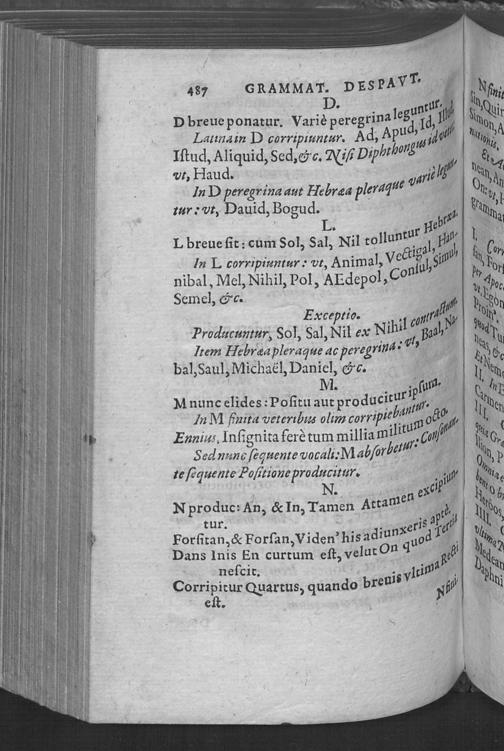 487 GRAMMAT. DESPAVT.
D.
D breue ponatur. Variè peregrina leguntur.
Latina in D corripiuntur. Ad, Apud, Id, Illud
Istud, Aliquid, Sed, &c. Nisi Diphthongus id vetet:
vt, Haud.
In D peregrina aut Hebræa pleraque variè legun-
tur: vt, Dauid, Bogud.
L.
L breue sit: cum Sol, Sal, Nil tolluntur Hebræa.
In L corripiuntur: vt, Animal, Vectigal, Han-
nibal, Mel, Nihil, Pol, AEdepol, Consul, Simul,
Semel, &c.
Exceptio.
Producuntur, Sol, Sal, Nil ex Nihil contractum.
Item Hebræa pleraque ac peregrina: vt, Baal, Na-
bal, Saul, Michaël, Daniel, &c.
M.
M nunc elides: Positu aut producitur ipsum.
In M finita veteribus olim corripiebantur.
Ennius, Insignita ferè tum millia militum octo.
Sed nunc sequente vocali: M absorbetur: Consonan-
te sequente Positione producitur.
N.
N produc: An, & In, Tamen Attamen excipiun-
tur.
Forsitan, & Forsan, Viden' his adiunxeris aptè.
Dans Inis En curtum est, velut On quod Tertia
nescit.
Corripitur Quartus, quando breuis vltima Recti
est.
N fini-